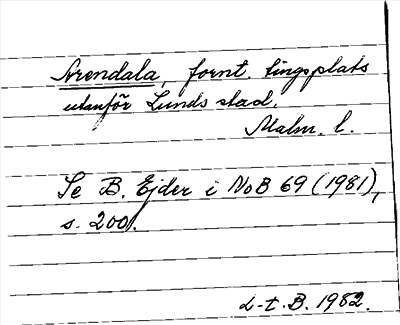 Arendala, fornt. tingsplats
utanför Lunds stad.
Malm. l.
Se B. Ejder i NoB 69 (1981),
s. 200.
L-t. B. 1982.